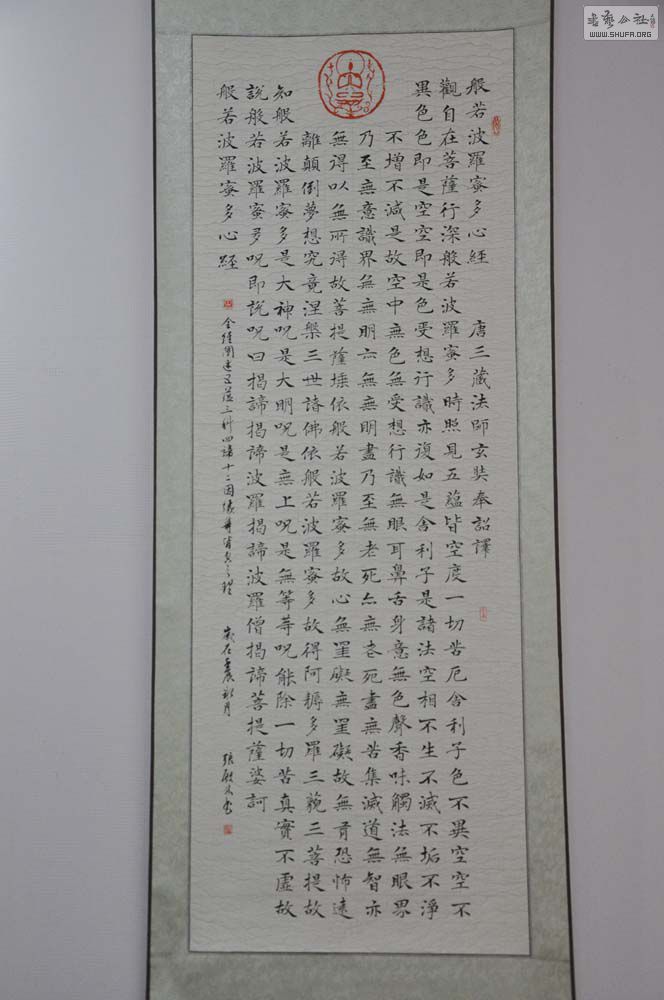 書藝公社
WWW.SHUFA.ORG
般若波羅蜜多心經 唐三藏法師玄奘奉詔譯
觀自在菩薩行深般若波羅蜜多時照見五蘊皆空度一切苦厄舍利子色不異空空不
異色色即是空空即是色受想行識亦復如是舍利子是諸法空相不生不滅不垢不淨
不增不減是故空中無色無受想行識無眼耳鼻舌身意無色聲香味觸法無眼界
乃至無意識界無無明亦無無明盡乃至無老死亦無老死盡無苦集滅道無智亦
無得以無所得故菩提薩埵依般若波羅蜜多故心無罣礙無罣礙故無有恐怖遠
離顛倒夢想究竟涅槃三世諸佛依般若波羅蜜多故得阿耨多羅三藐三菩提故
知般若波羅蜜多是大神呪是大明呪是無上呪是無等等呪能除一切苦真實不虛故
說般若波羅蜜多呪即說呪曰揭諦揭諦波羅揭諦波羅僧揭諦菩提薩婆訶
般若波羅蜜多心經 全經闡述五蘊三科四諦十二因緣等皆空之理 歲在壬辰秋月 張